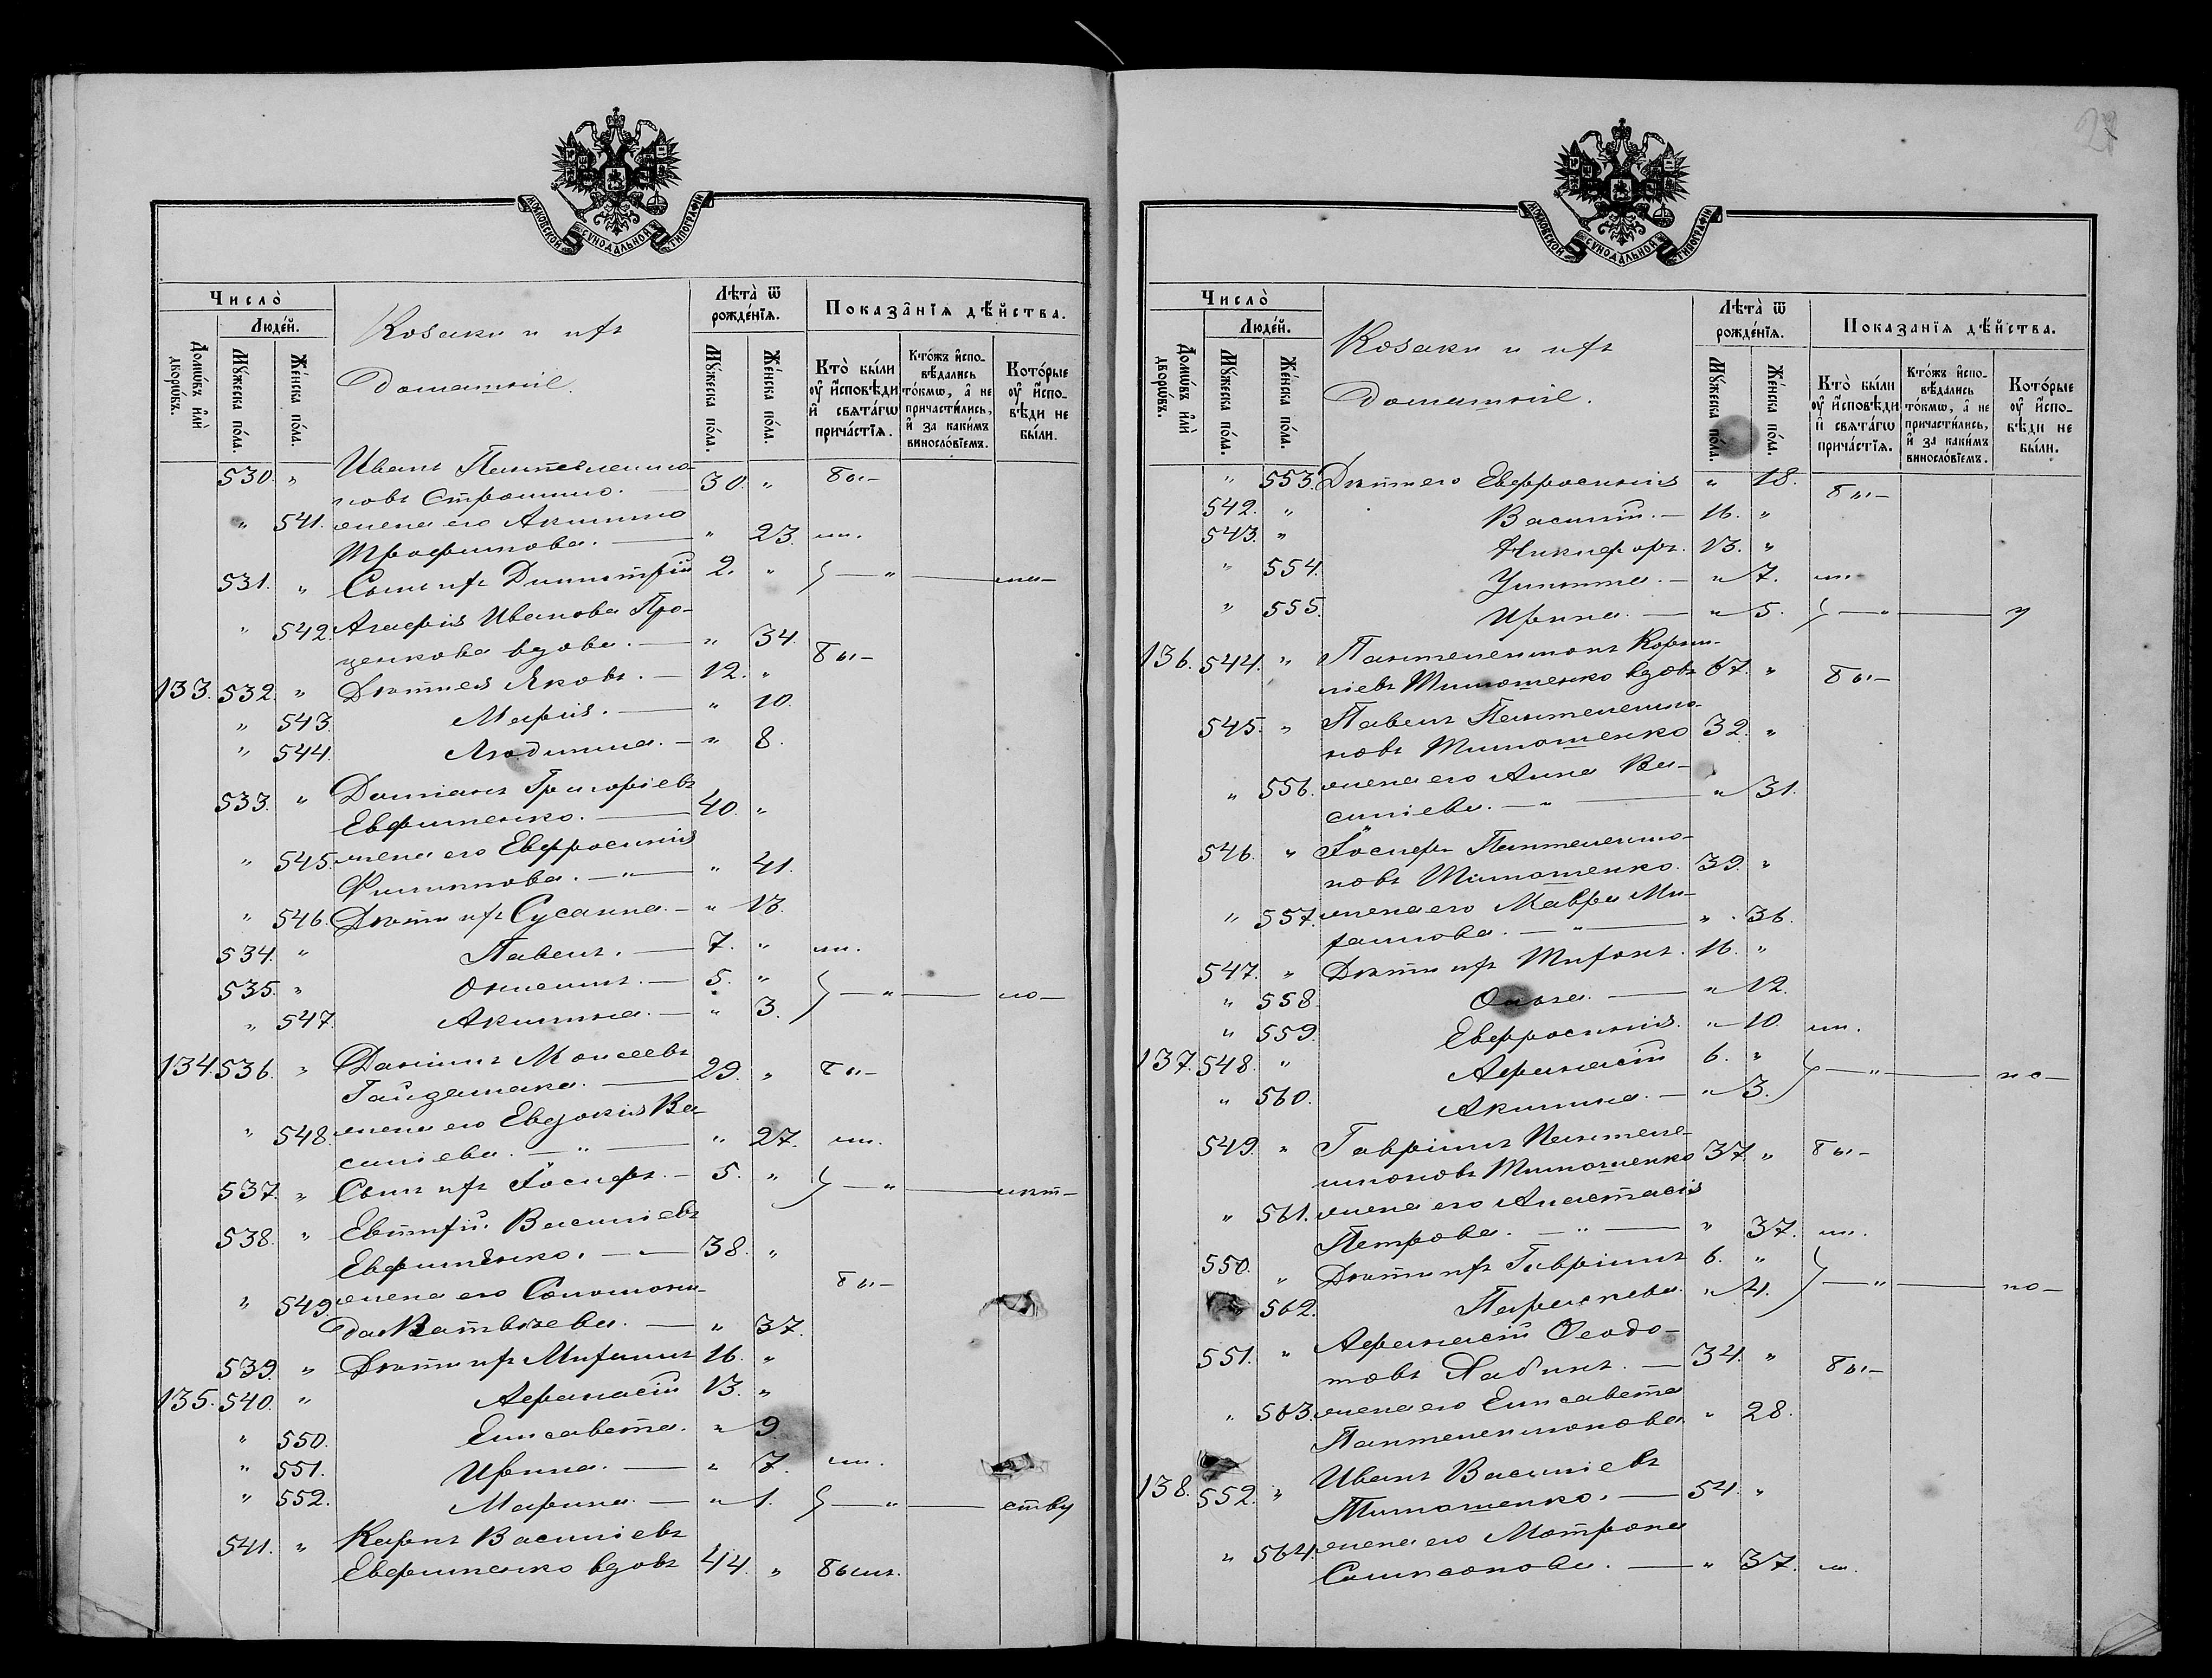 МОСКОВСКОЙ СУНОДАЛЬНОЙ ТИПОГРАФІИ
Число̀
Людей.
Домѡвъ и҆лѝ дворѡвъ.
Мꙋжеска по́ла.
Же́нска по́ла.
Козаки и ихъ
домашніе.
Лѣта̀ ѿ рожде́нїѧ.
Мꙋжеска по́ла.
Же́нска по́ла.
Показа̂нїѧ дѣ́йства.
Кто̀ бы́ли оу҆ и҆сповѣди и҆ свѧта́гѡ прича́стїѧ.
Кто́жъ и҆спо-вѣдались то́кмѡ, а҆ не причасти́лись, и҆ за каки́мъ винословїемъ.
Кото́рые оу҆ и҆спо-вѣди не бы́ли.
530. " Иванъ Пантелеимо-
новъ Строшино. — 30. " бы-
" 541. жена его Акилина
Трофимова. — " 23. ли.
531. " Сынъ ихъ Димитрій 2. " — " — ма-
" 542. Агафія Иванова Про-
ценкова вдова. — " 34. бы-
133. 532. " Дѣти ея Яковъ. — 12. "
" 543. Марія. — " 10.
" 544. Людмила. — " 8.
533. " Доміанъ Григоріевъ
Ефименко. — 40. "
" 545. жена его Евфросинія
Филиппова. — " — " 41.
" 546. Дѣти ихъ Сусанна. — " 13.
534. " Павелъ. — 7. " ли.
535. " Онисимъ. — 5. " — " — ло-
" 547. Акилина. — " 3.
134. 536. " Даніилъ Моисеевъ
Гайдамака. — 29. " бы-
" 548. жена его Евдокія Ва-
силіева. — " — " 27. ли.
537. " Сынъ ихъ Іосифъ. — 5. " — " — лѣт-
538. " Евтихій Василіевъ
Ефименко. — 38. "
" 549. жена его Соломони-
да Матвѣева. — " 37. бы-
539. " Дѣти ихъ Михаилъ 16. "
135. 540. " Афанасій 13. "
" 550. Елисавета. " 9
" 551. Ирина. — " 7. ли.
" 552. Марина — " 1. — " — ству
541. " Карпъ Василіевъ
Ефименко вдовъ 44. " былъ.
27
МОСКОВСКОЙ СУНОДАЛЬНОЙ ТИПОГРАФІИ
Число̀
Людей.
Домѡвъ и҆лѝ дворѡвъ.
Мꙋжеска по́ла.
Же́нска по́ла.
Козаки и ихъ
домашніе.
Лѣта̀ ѿ рожде́нїѧ.
Мꙋжеска по́ла.
Же́нска по́ла.
Показа̂нїѧ дѣ́йства.
Кто̀ бы́ли оу҆ и҆сповѣди и҆ свѧта́гѡ прича́стїѧ.
Кто́жъ и҆спо-вѣдались то́кмѡ, а҆ не причасти́лись, и҆ за каки́мъ винословїемъ.
Кото́рые оу҆ и҆спо-вѣди не бы́ли.
" 553. Дѣти его Евфросинія " 18. бы-
542. " Василій. — 16. "
543. " Никифоръ. 13. "
" 554. Улита. — " 7. ли.
" 555. Ирина. — " 5. — " — у
136. 544. " Пантелеимонъ Корни-
ліевъ Тимошенко вдовъ 67. " бы-
545. " Павелъ Пантелеимо-
новъ Тимошенко 32. "
" 556. жена его Анна Ва-
силіева. — " — " 31.
546. " Іосифъ Пантелеимо-
новъ Тимошенко. 39. "
" 557. жена его Мавра Ми-
хаилова. — " — " 36.
547. " Дѣти ихъ Миронъ. 16. "
" 558. Ольга. — " 12.
" 559. Евфросинія. " 10. ли.
137. 548. " Афанасій 6. " — " — ло-
" 560. Акилина. — " 3.
549. " Гавріилъ Пантеле-
имоновъ Тимошенко 37. " бы-
" 561. жена его Анастасія
Петрова. — " — " 37. ли.
550. " Дѣти ихъ Гавріилъ 6. " — " — ло-
562. Параскева. " 4.
551. " Афанасій Ѳеодо-
товъ Бабичъ. — 34. " бы-
" 563. жена его Елисавета
Пантелеимонова " 28.
138. 552. " Иванъ Василіевъ
Тимошенко. — 54. "
" 564. жена его Матрона
Сампсонова. — " 37. ли.